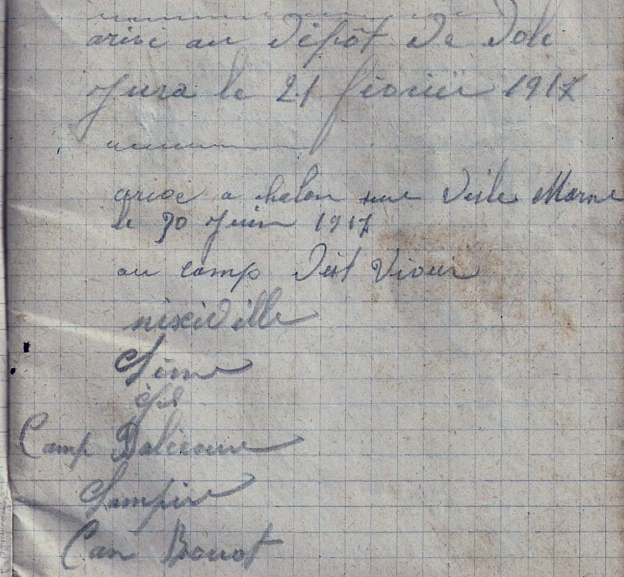 arivé au Dépôt de Dole
Jura le 21 février 1917
arivé a halon sur Vesle Marne
le 30 Juin 1917
au camp Dit
nixéville
Camp
Lempire
Can Bouot